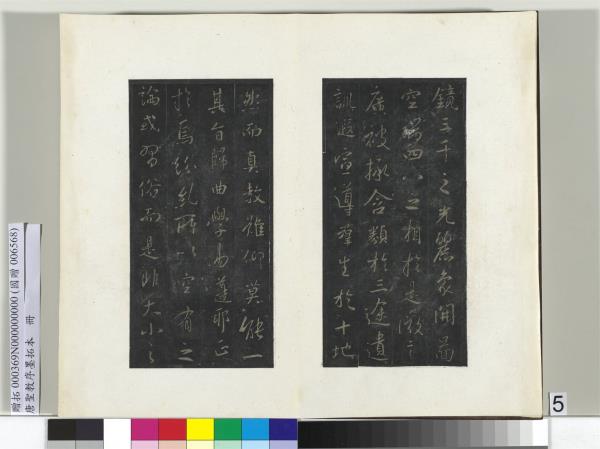 鏡三千之光麗象開圖
空端四八之相於是微言
廣被拯含類於三途遺
訓遐宣導群生於十地
然而真教難仰莫能一
其旨歸曲學易遵邪正
於焉紛糺所以空有之
論或習俗而是非大小之
贈拓 000369N000000000 (國贈 006568)
唐聖教序墨拓本 冊
5